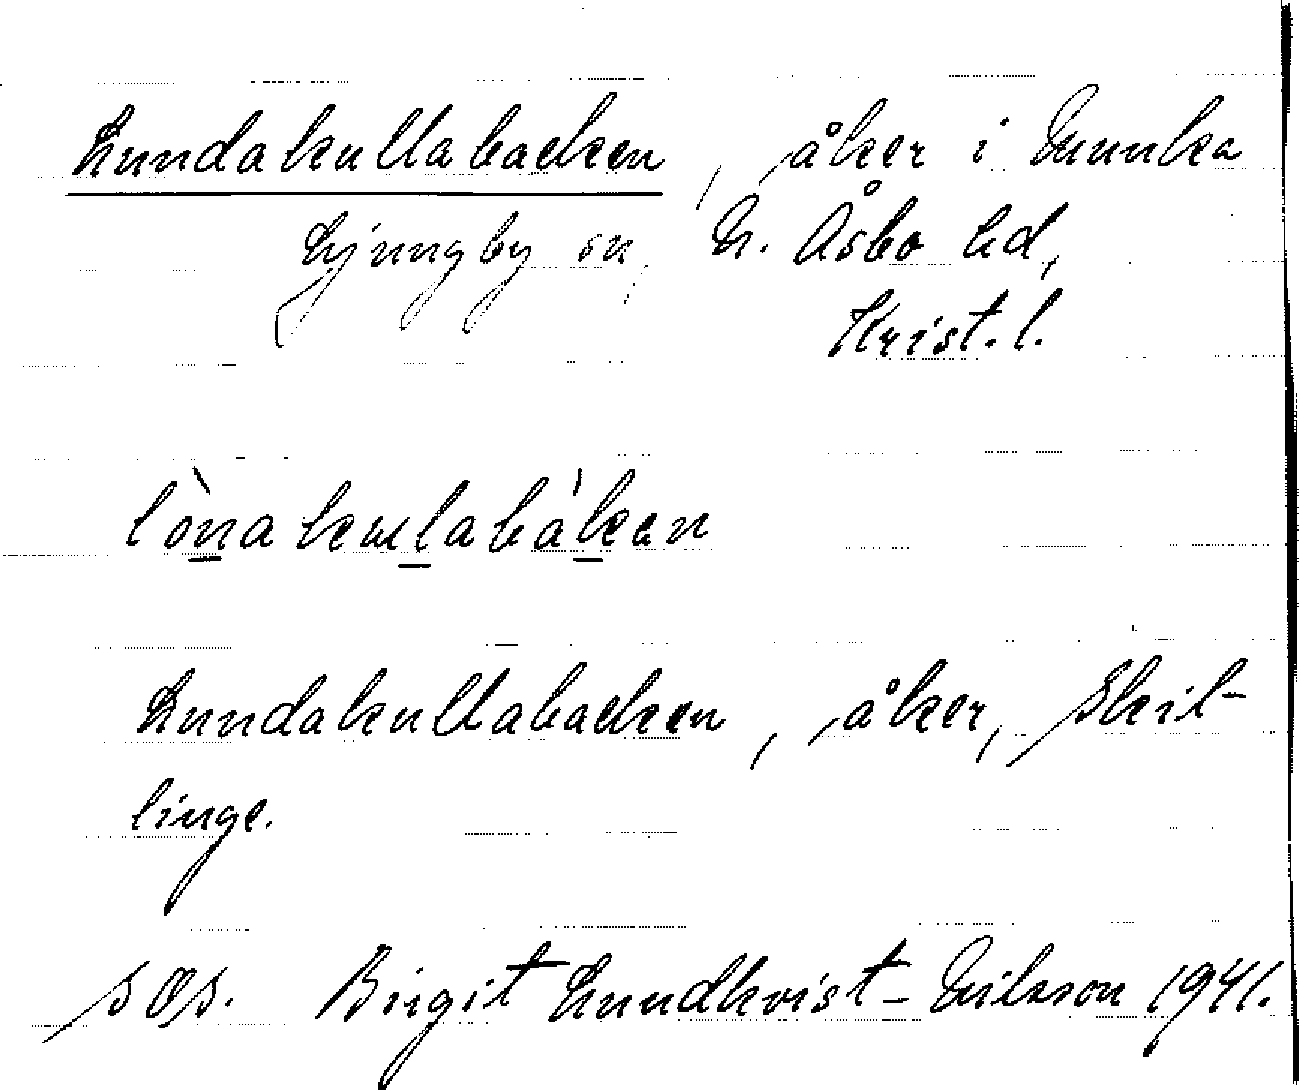 Lundakullabacken, åker i Munka
Ljungby sn, N. Åsbo hd,
Krist. l.
lònakulabákan
Lundakullabacken, åker, Skit-
linge.
s Birgit Lundkvist-Nilsson 1941.